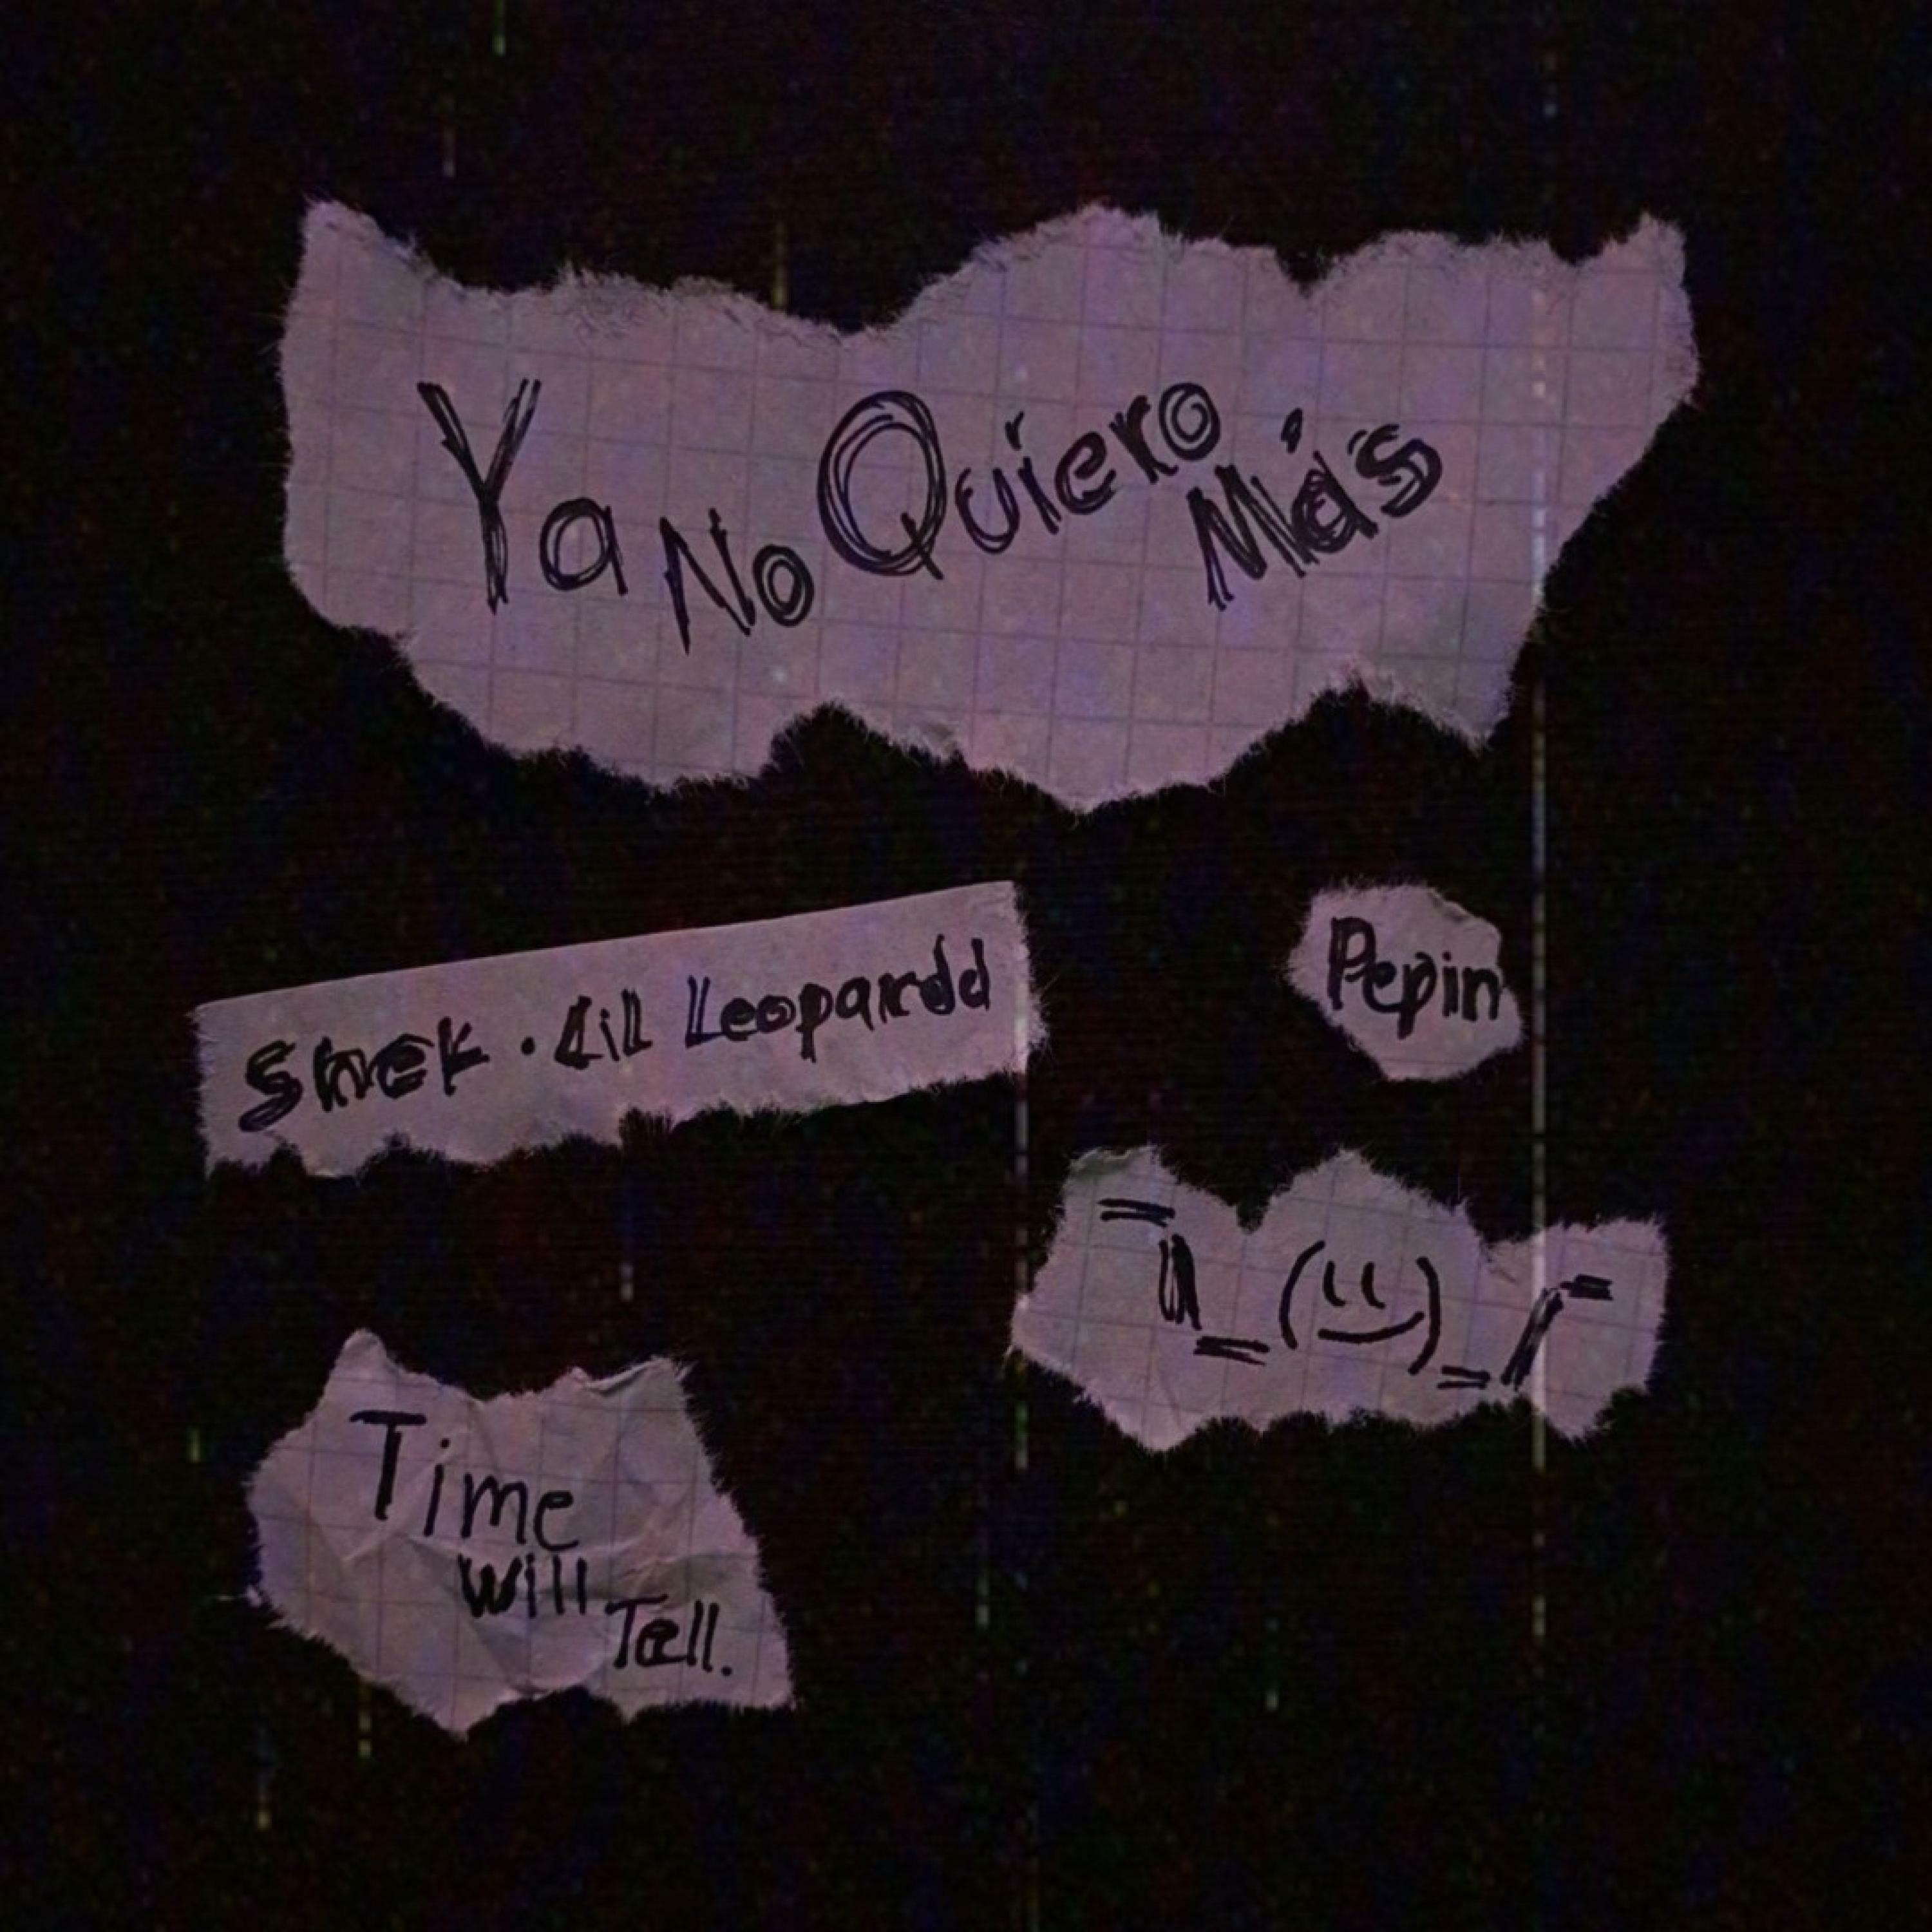 Ya No Quiero Más
Shek · Lil Leopardd
Pepin
¯\_(ツ)_/¯
Time
Will
Tell.